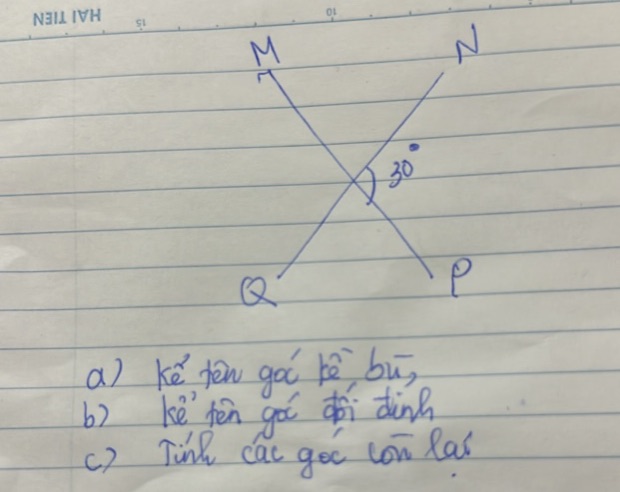 HẢI TIẾN
15
10
M
N
30°
Q
P
a) Kể tên góc kề bù,
b) Kể tên góc đối đỉnh
c) Tính các góc còn lại